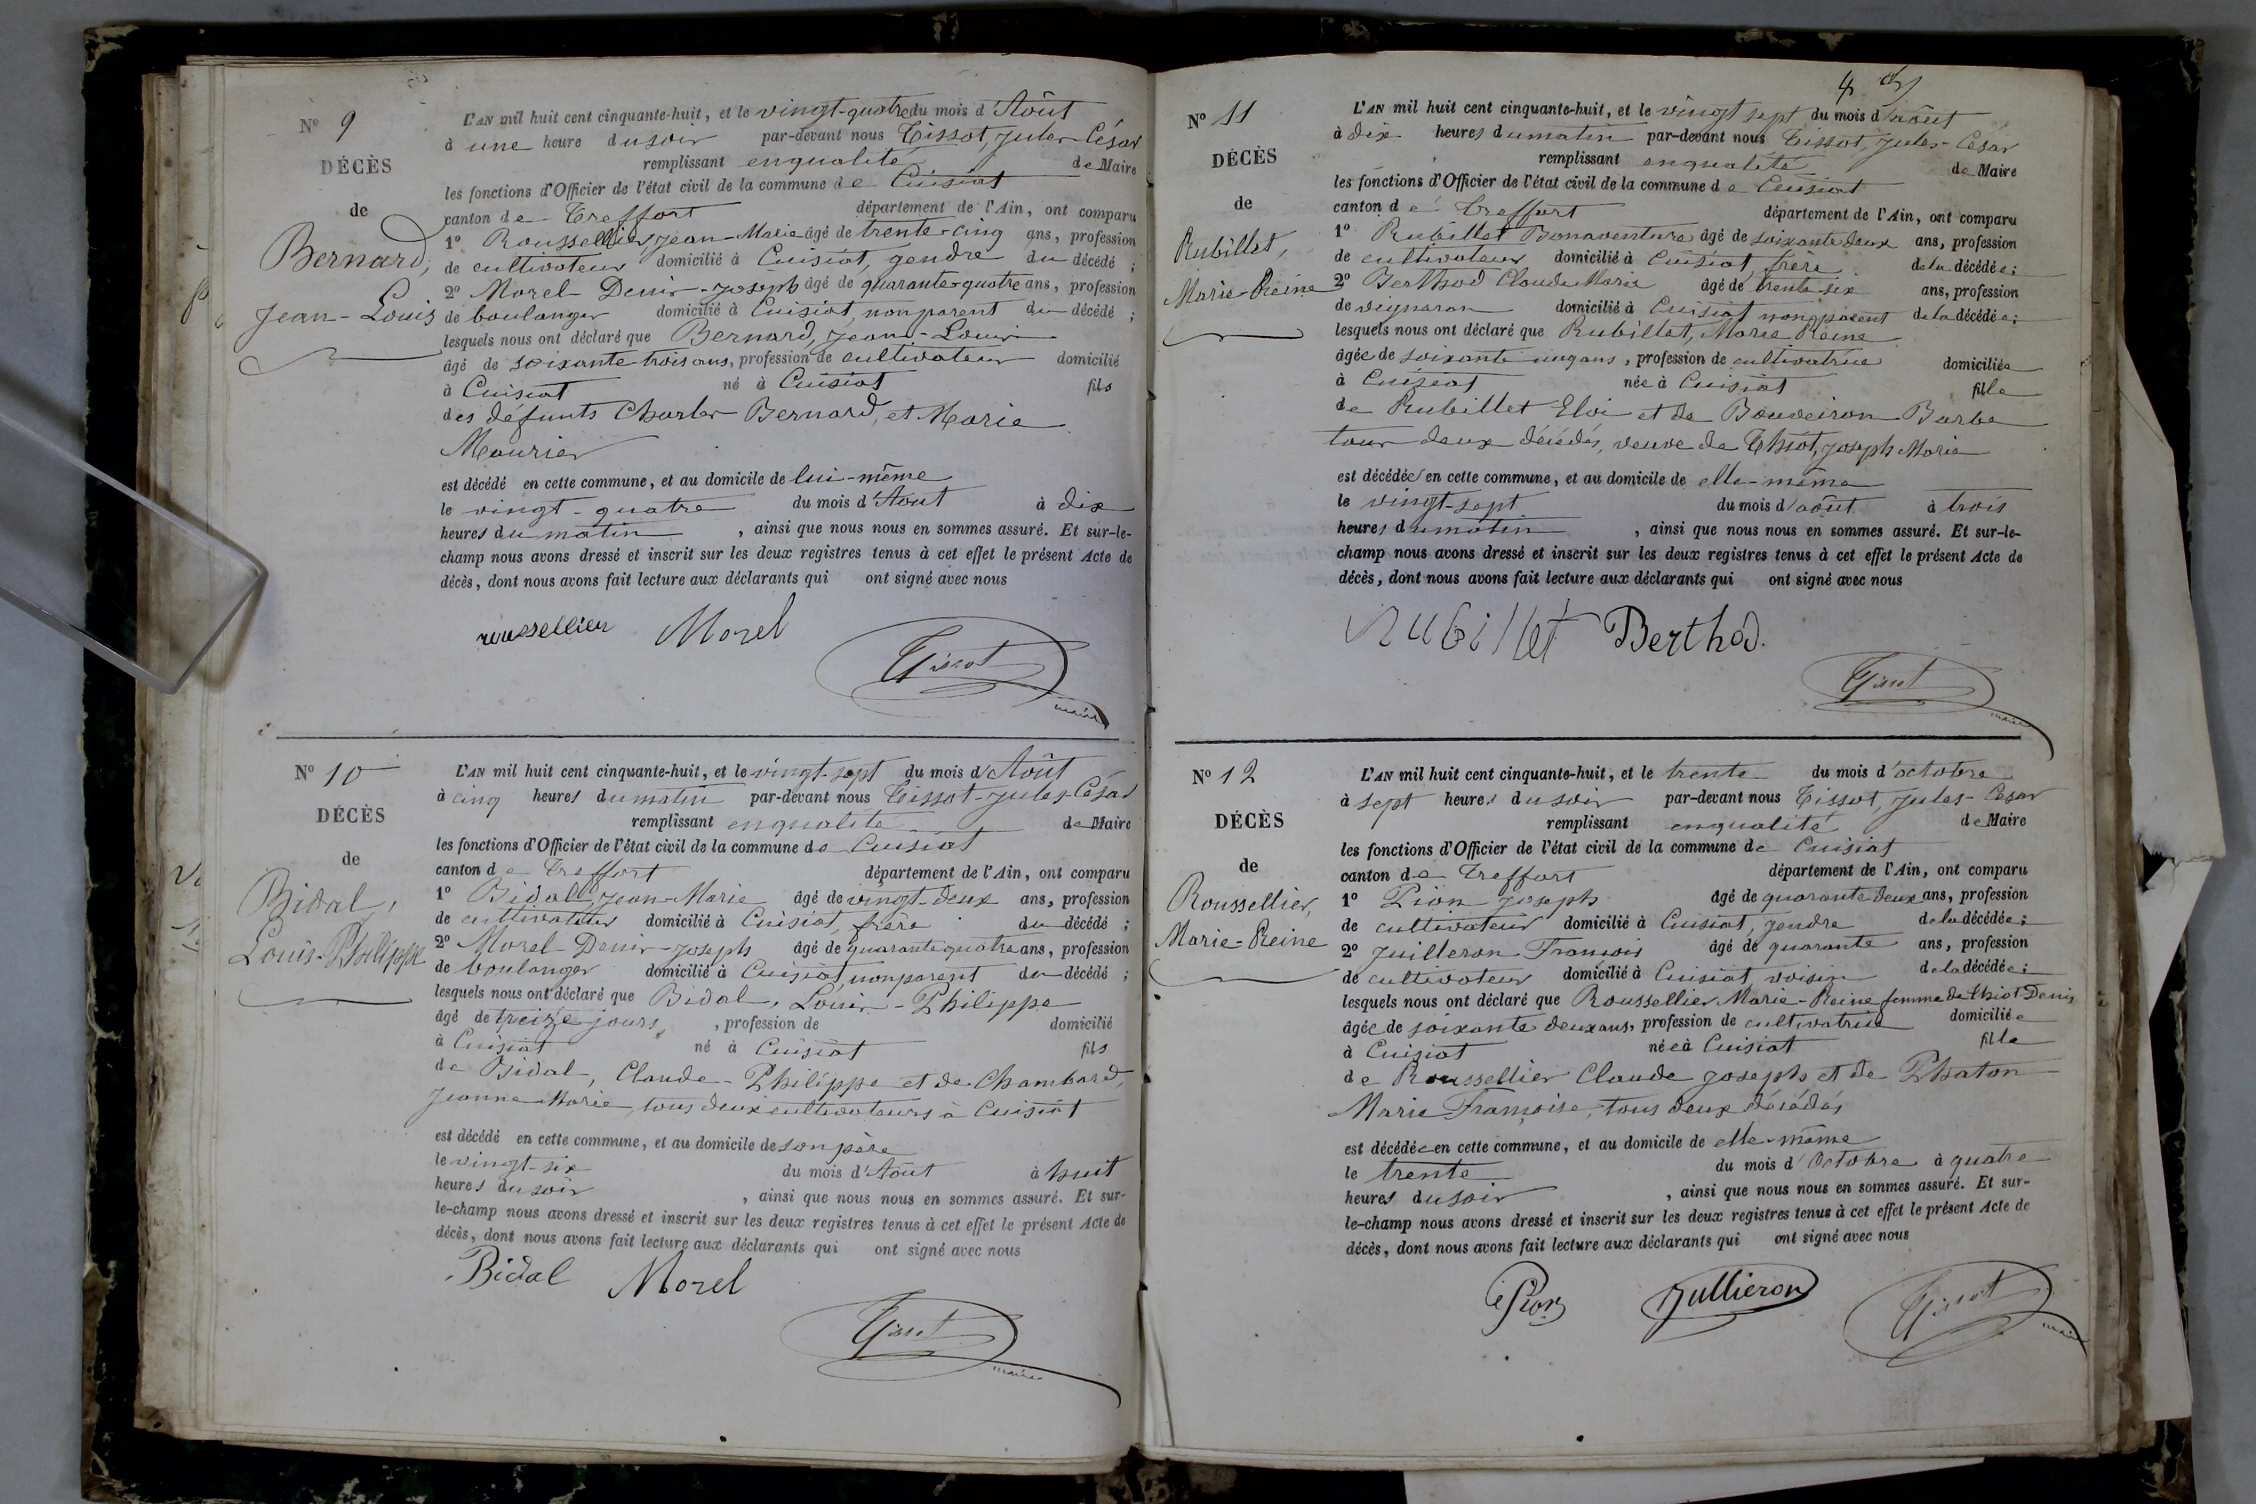 N° 9
DÉCÈS
de
Bernard,
Jean-Louis
L'AN mil huit cent cinquante-huit, et le vingt-quatre du mois d'Août
à une heure du soir par-devant nous Tissot, Jules-César
remplissant en qualité de Maire
les fonctions d'Officier de l'état civil de la commune de Cuisiat
canton de Treffort département de l'Ain, ont comparu
1° Roussellier, Jean-Marie âgé de trente-cinq ans, profession
de cultivateur domicilié à Cuisiat, gendre du décédé ;
2° Morel Denis-Joseph âgé de quarante-quatre ans, profession
de boulanger domicilié à Cuisiat, non parent du décédé ;
lesquels nous ont déclaré que Bernard, Jean-Louis
âgé de soixante trois ans, profession de cultivateur domicilié
à Cuisiat né à Cuisiat fils
des défunts Charles Bernard, et Marie
Mourier
est décédé en cette commune, et au domicile de lui-même
le vingt-quatre du mois d'Août à dix
heures du matin , ainsi que nous nous en sommes assuré. Et sur-le-
champ nous avons dressé et inscrit sur les deux registres tenus à cet effet le présent Acte de
décès, dont nous avons fait lecture aux déclarants qui ont signé avec nous
roussellier Morel
Tissot
maire
N° 10
DÉCÈS
de
Bidal,
Louis-Philippe
L'AN mil huit cent cinquante-huit, et le vingt-sept du mois d'Août
à cinq heures du matin par-devant nous Tissot-Jules-César
remplissant en qualité de Maire
les fonctions d'Officier de l'état civil de la commune de Cuisiat
canton de Treffort département de l'Ain, ont comparu
1° Bidal, Jean-Marie âgé de vingt-deux ans, profession
de cultivateur domicilié à Cuisiat, frère du décédé ;
2° Morel-Denis-Joseph âgé de quarante quatre ans, profession
de boulanger domicilié à Cuisiat, non parent du décédé ;
lesquels nous ont déclaré que Bidal, Louis-Philippe
âgé de treize jours , profession de domicilié
à Cuisiat né à Cuisiat fils
de Bidal, Claude-Philippe et de Chambard,
Jeanne Marie, tous deux cultivateurs à Cuisiat
est décédé en cette commune, et au domicile de son père
le vingt-six du mois d'Août à huit
heures du soir , ainsi que nous nous en sommes assuré. Et sur-
le-champ nous avons dressé et inscrit sur les deux registres tenus à cet effet le présent Acte de
décès, dont nous avons fait lecture aux déclarants qui ont signé avec nous
Bidal Morel
Tissot
maire
4
N° 11
DÉCÈS
de
Rubillet,
Marie-Reine
L'AN mil huit cent cinquante-huit, et le vingt sept du mois d'août
à dix heures du matin par-devant nous Tissot, Jules-César
remplissant en qualité de Maire
les fonctions d'Officier de l'état civil de la commune de Cuisiat
canton de Treffort département de l'Ain, ont comparu
1° Rubillet Bonaventure âgé de soixante deux ans, profession
de cultivateur domicilié à Cuisiat, frère de la décédée ;
2° Berthod Claude Marie âgé de trente-six ans, profession
de vigneron domicilié à Cuisiat non parent de la décédée ;
lesquels nous ont déclaré que Rubillet, Marie Reine
âgée de soixante un ans, profession de cultivatrice domiciliée
à Cuisiat née à Cuisiat fille
de Rubillet Eloi et de Bouveiron Barbe
tous deux décédés, veuve de Thiot, Joseph Marie
est décédée en cette commune, et au domicile de elle-même
le vingt-sept du mois d'août à trois
heures du matin , ainsi que nous nous en sommes assuré. Et sur-le-
champ nous avons dressé et inscrit sur les deux registres tenus à cet effet le présent Acte de
décès, dont nous avons fait lecture aux déclarants qui ont signé avec nous
Rubillet Berthod.
Tissot
maire
N° 12
DÉCÈS
de
Roussellier,
Marie-Reine
L'AN mil huit cent cinquante-huit, et le trente du mois d'octobre
à sept heures du soir par-devant nous Tissot, Jules-César
remplissant en qualité de Maire
les fonctions d'Officier de l'état civil de la commune de Cuisiat
canton de Treffort département de l'Ain, ont comparu
1° Pion Joseph âgé de quarante deux ans, profession
de cultivateur domicilié à Cuisiat, gendre de la décédée ;
2° Juilleron François âgé de quarante ans, profession
de cultivateur domicilié à Cuisiat voisin de la décédée ;
lesquels nous ont déclaré que Roussellier Marie-Reine femme de thiot Denis
âgée de soixante deux ans, profession de cultivatrice domiciliée
à Cuisiat née à Cuisiat fille
de Roussellier Claude Joseph et de Phaton
Marie Françoise, tous deux décédés
est décédée en cette commune, et au domicile de elle-même
le trente du mois d'Octobre à quatre
heures du soir , ainsi que nous nous en sommes assuré. Et sur-
le-champ nous avons dressé et inscrit sur les deux registres tenus à cet effet le présent Acte de
décès, dont nous avons fait lecture aux déclarants qui ont signé avec nous
Pion Jullieron
Tissot
maire